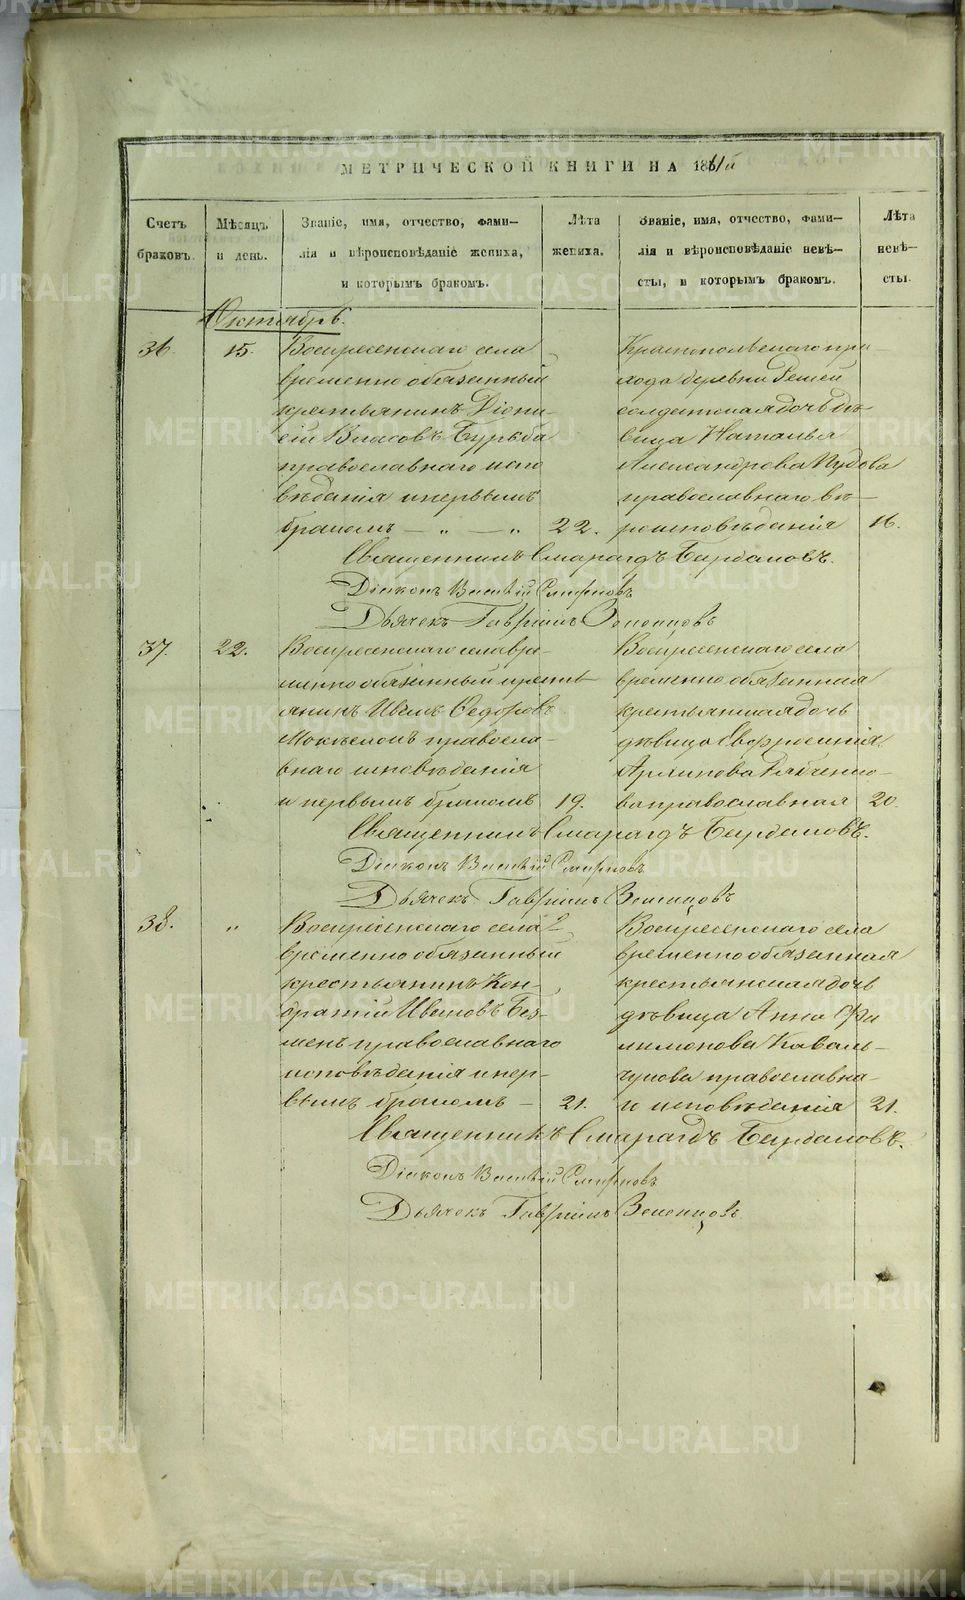 МЕТРИЧЕСКОЙ КНИГИ НА 1861й
Счетъ браковъ.
Мѣсяцъ и день.
Званіе, имя, отчество, фами-
лія и вѣроисповѣданіе жениха,
и которымъ бракомъ.
Лѣта жениха.
Званіе, имя, отчество, фами-
лія и вѣроисповѣданіе невѣ-
сты, и которымъ бракомъ.
Лѣта невѣ-
сты.
Октябрь.
36. 15. Воскресенскаго села
временно обязанный
крестьянинъ Діони-
сій Власовъ Бурьба
православнаго испо
вѣданія и первымъ
бракомъ — „ — „ 22.
Краснопольскаго при-
хода деревни
солдатская дочь дѣ-
вица Наталья
Александрова Пудова
православнаго вѣ-
роисповѣданія 16.
Священникъ Смарагдъ Бирдаловъ.
Діаконъ Василій Смирновъ
Дьячекъ Гавріилъ
37. 22. Воскресенскаго села вре-
менно обязанный кресть
янинъ Иванъ Ѳедоровъ
православ-
наго исповѣданія
и первымъ бракомъ 19.
Воскресенскаго села
временно обязанная
крестьянская дочь
дѣвица Евфросинія
Рябченко-
ва православная 20.
Священникъ Смарагдъ Бирдаловъ.
Діаконъ Василій Смирновъ
Дьячекъ Гавріилъ
38. „ Воскресенскаго села
временно обязанный
крестьянинъ Кон-
дратій Ивановъ Без-
менъ православнаго
исповѣданія и пер-
вымъ бракомъ — 21.
Воскресенскаго села
временно обязанная
крестьянская дочь
дѣвица Анна Фи
лимонова Коваль-
чукова православна-
и исповѣданія 21.
Священникъ Смарагдъ Бирдаловъ.
Діаконъ Василій Смирновъ
Дьячекъ Гавріилъ
METRIKI.GASO-URAL.RU